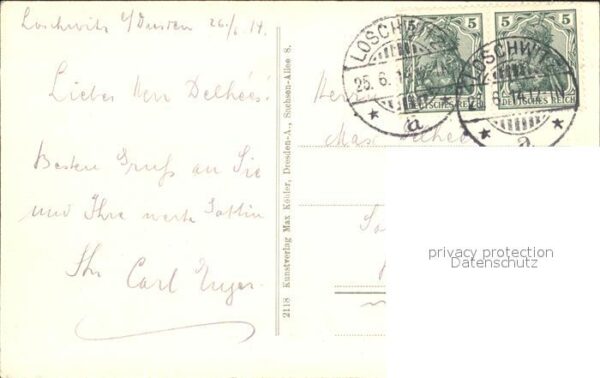 Loschwitz b/Dresden 26./6.14.
Lieber Herr Delheés!
Besten Gruß an Sie
und Ihre werte Gattin
Ihr Carl Unger.
2118 Kunstverlag Max Köhler, Dresden-A., Sachsen-Allee 8.
5 5
DEUTSCHES REICH
DEUTSCHES REICH
LOSCHWITZ
25. 6. 14
a
LOSCHWITZ
a
Herrn
Max Delhees
privacy protection
Datenschutz